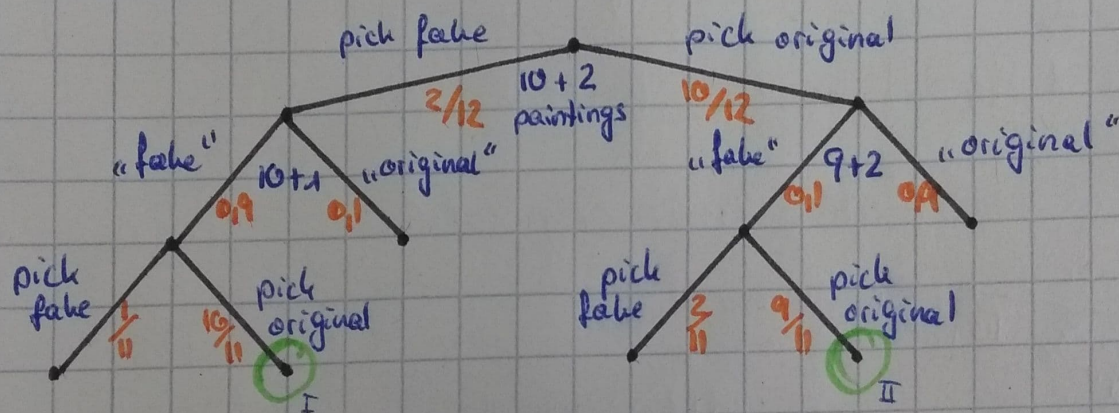 pick fake
pick original
10 + 2
paintings
2/12
10/12
„fake“
10+1
„original“
0,9
0,1
„fake“
9+2
„original“
0,1
0,9
pick
fake
1/11
10/11
pick
original
I
pick
fake
2/11
9/11
pick
original
II